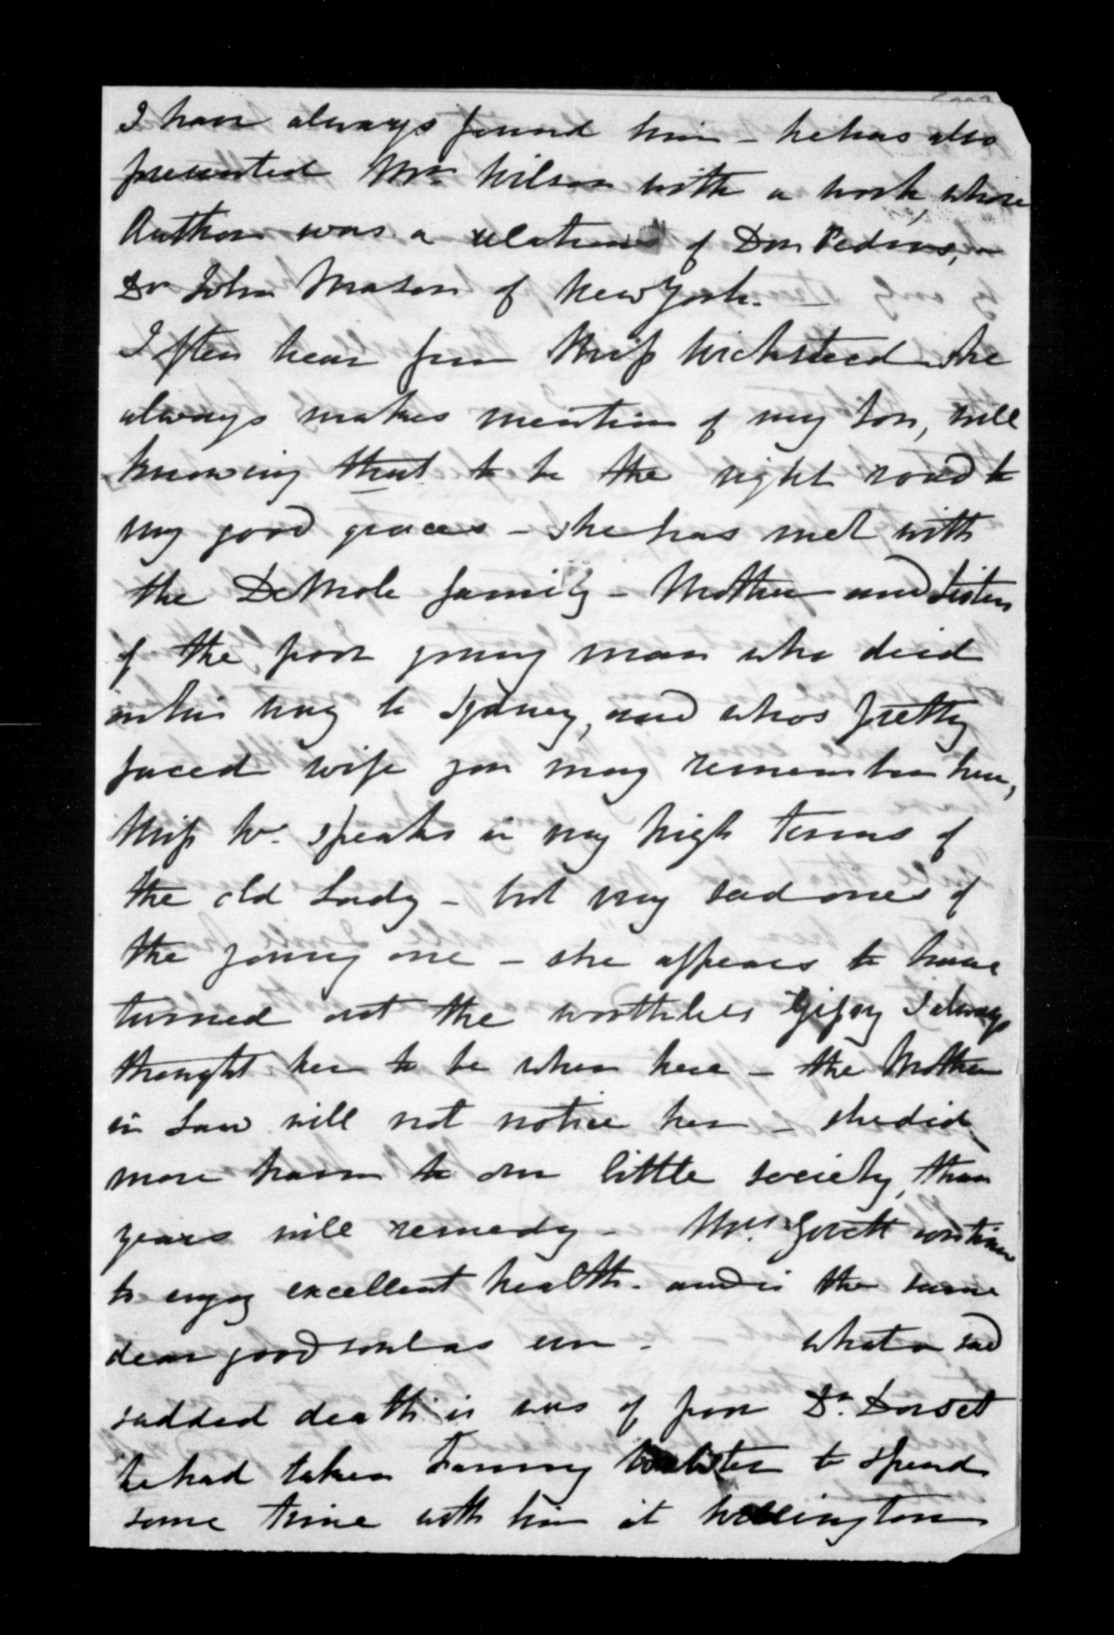 I have always found him - he has also
presented Mrs Wilson with a work, whose
Author was a relation of Don Pedros, -
Dr John Mason of New York. -
I often hear from Miss Wicksteed she
always makes mention of my son, well
knowing that to be the right road to
my good graces - she has met with
the DeMole family - Mother and Sisters
of the poor young man who died
on his way to Sydney, and whos pretty
faced wife you may remember here,
Miss W. speaks in very high terms of
the old Lady - but very sad ones of
the young one - she appears to have
turned out the worthless Gipsy I always
thought her to be when here - the Mother
in Law will not notice her - she did
more harm to our little society, than
years will remedy - Mrs. Govett continues
to enjoy excellent health. and is the same
dear good soul as ever - what a sad
sudded death is was of poor Dr. Dorset
he had taken Fanny Webster to spend
some time with him at Wellington